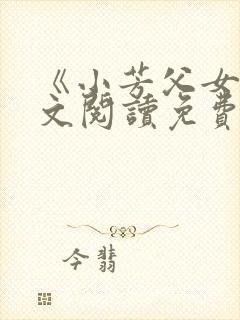 《小芳父女
文阅讀免費
今翡